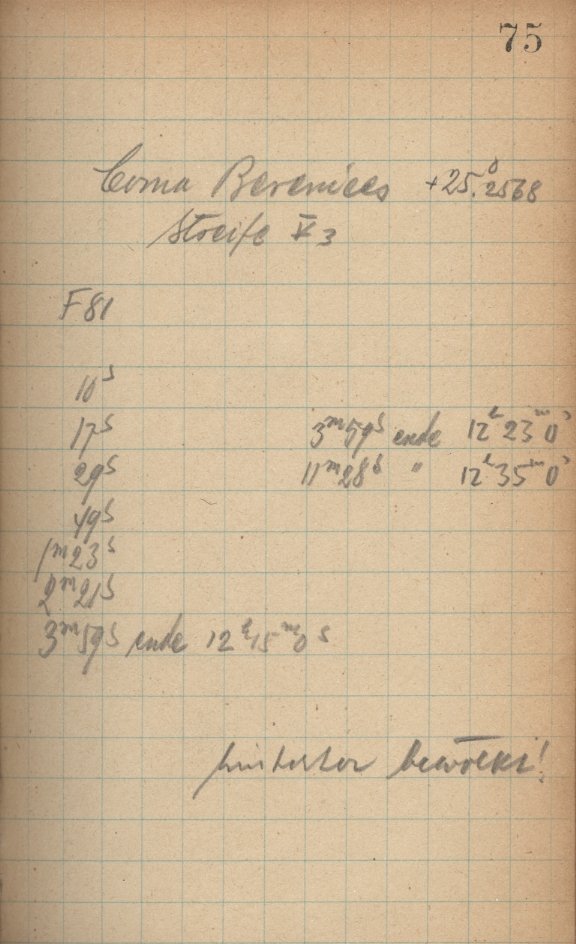 75
Coma Berenices +25.°2568
Streife V3
F 81
10ˢ
17ˢ 3ᵐ59ˢ ende 12ʰ23ᵐ0ˢ
29ˢ 11ᵐ28ˢ " 12ʰ35ᵐ0ˢ
49ˢ
1ᵐ23ˢ
2ᵐ21ˢ
3ᵐ59ˢ ende 12ʰ15ᵐ0ˢ
bewölkt!